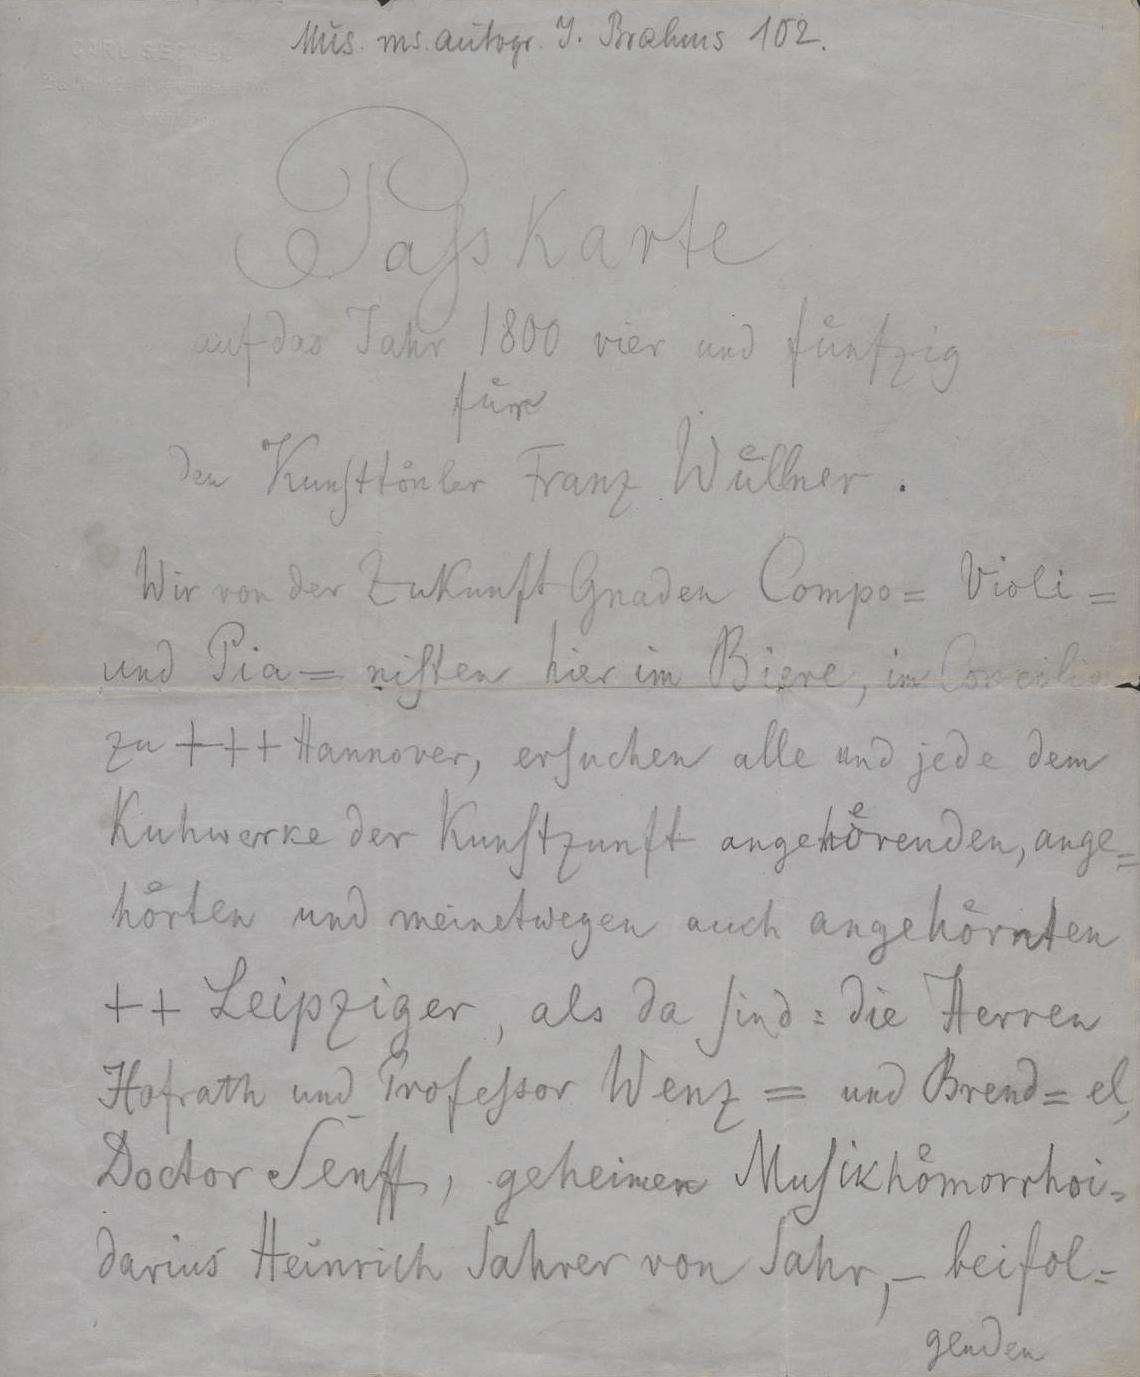 CARL SE
Mus. ms. autogr. J. Brahms 102.
PaſsKarte
auf das Jahr 1800 vier und fünfzig
für
den Kunſttönler Franz Wüllner.
Wir von der Zukunft Gnaden Compo= Violi=
und Pia= niſten hier im Biere, im Concilio
zu +++ Hannover, erſuchen alle und jede dem
Kuhwerke der Kunſtzunft angehörenden, ange=
hörten und meinetwegen auch angehörnten
++ Leipziger, als da ſind: die Herren
Hofrath und Profeſsor Wenz= und Brend=el,
Doctor Senff, geheimen Muſikhömorrhoi=
darius Heinrich Sahrer von Sahr, – beifol=
genden